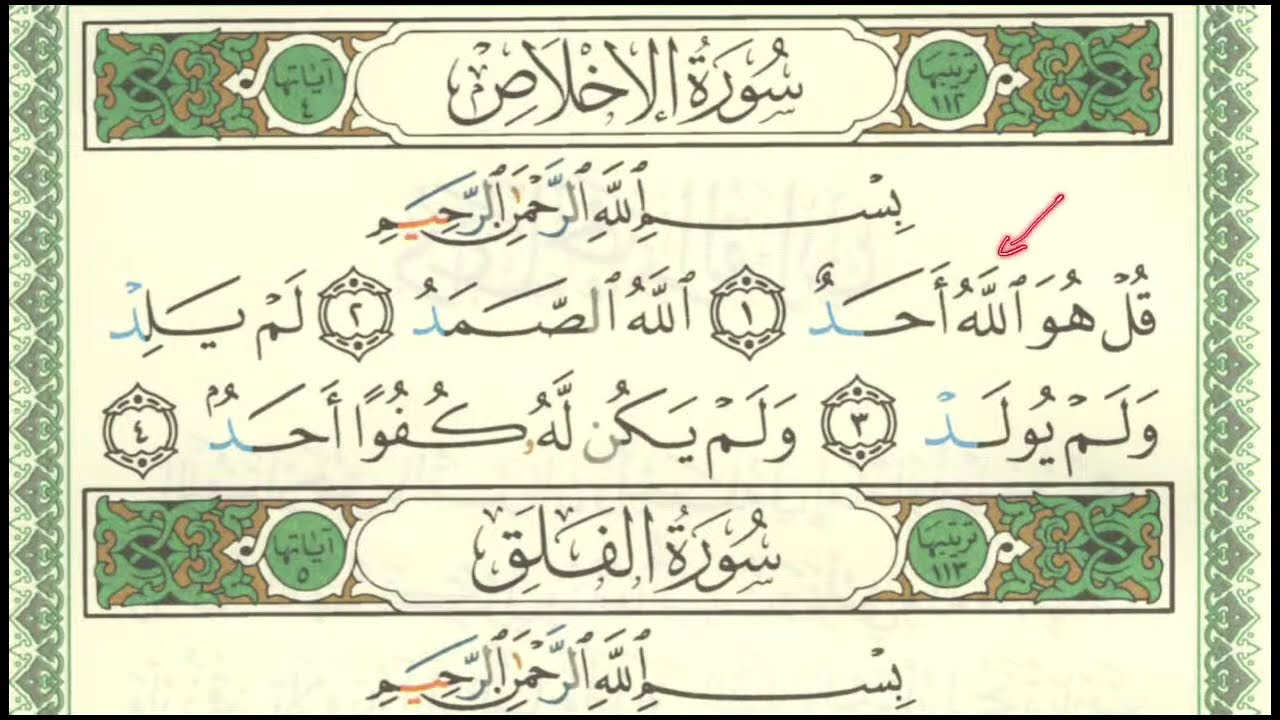 ترتيبها ١١٢ سُورَةُ الإِخْلَاصِ آياتها ٤
بِسْمِ ٱللَّهِ ٱلرَّحْمَٰنِ ٱلرَّحِيمِ
قُلْ هُوَ ٱللَّهُ أَحَدٌ ١ ٱللَّهُ ٱلصَّمَدُ ٢ لَمْ يَلِدْ
وَلَمْ يُولَدْ ٣ وَلَمْ يَكُن لَّهُۥ كُفُوًا أَحَدٌۢ ٤
ترتيبها ١١٣ سُورَةُ الفَلَقِ آياتها ٥
بِسْمِ ٱللَّهِ ٱلرَّحْمَٰنِ ٱلرَّحِيمِ